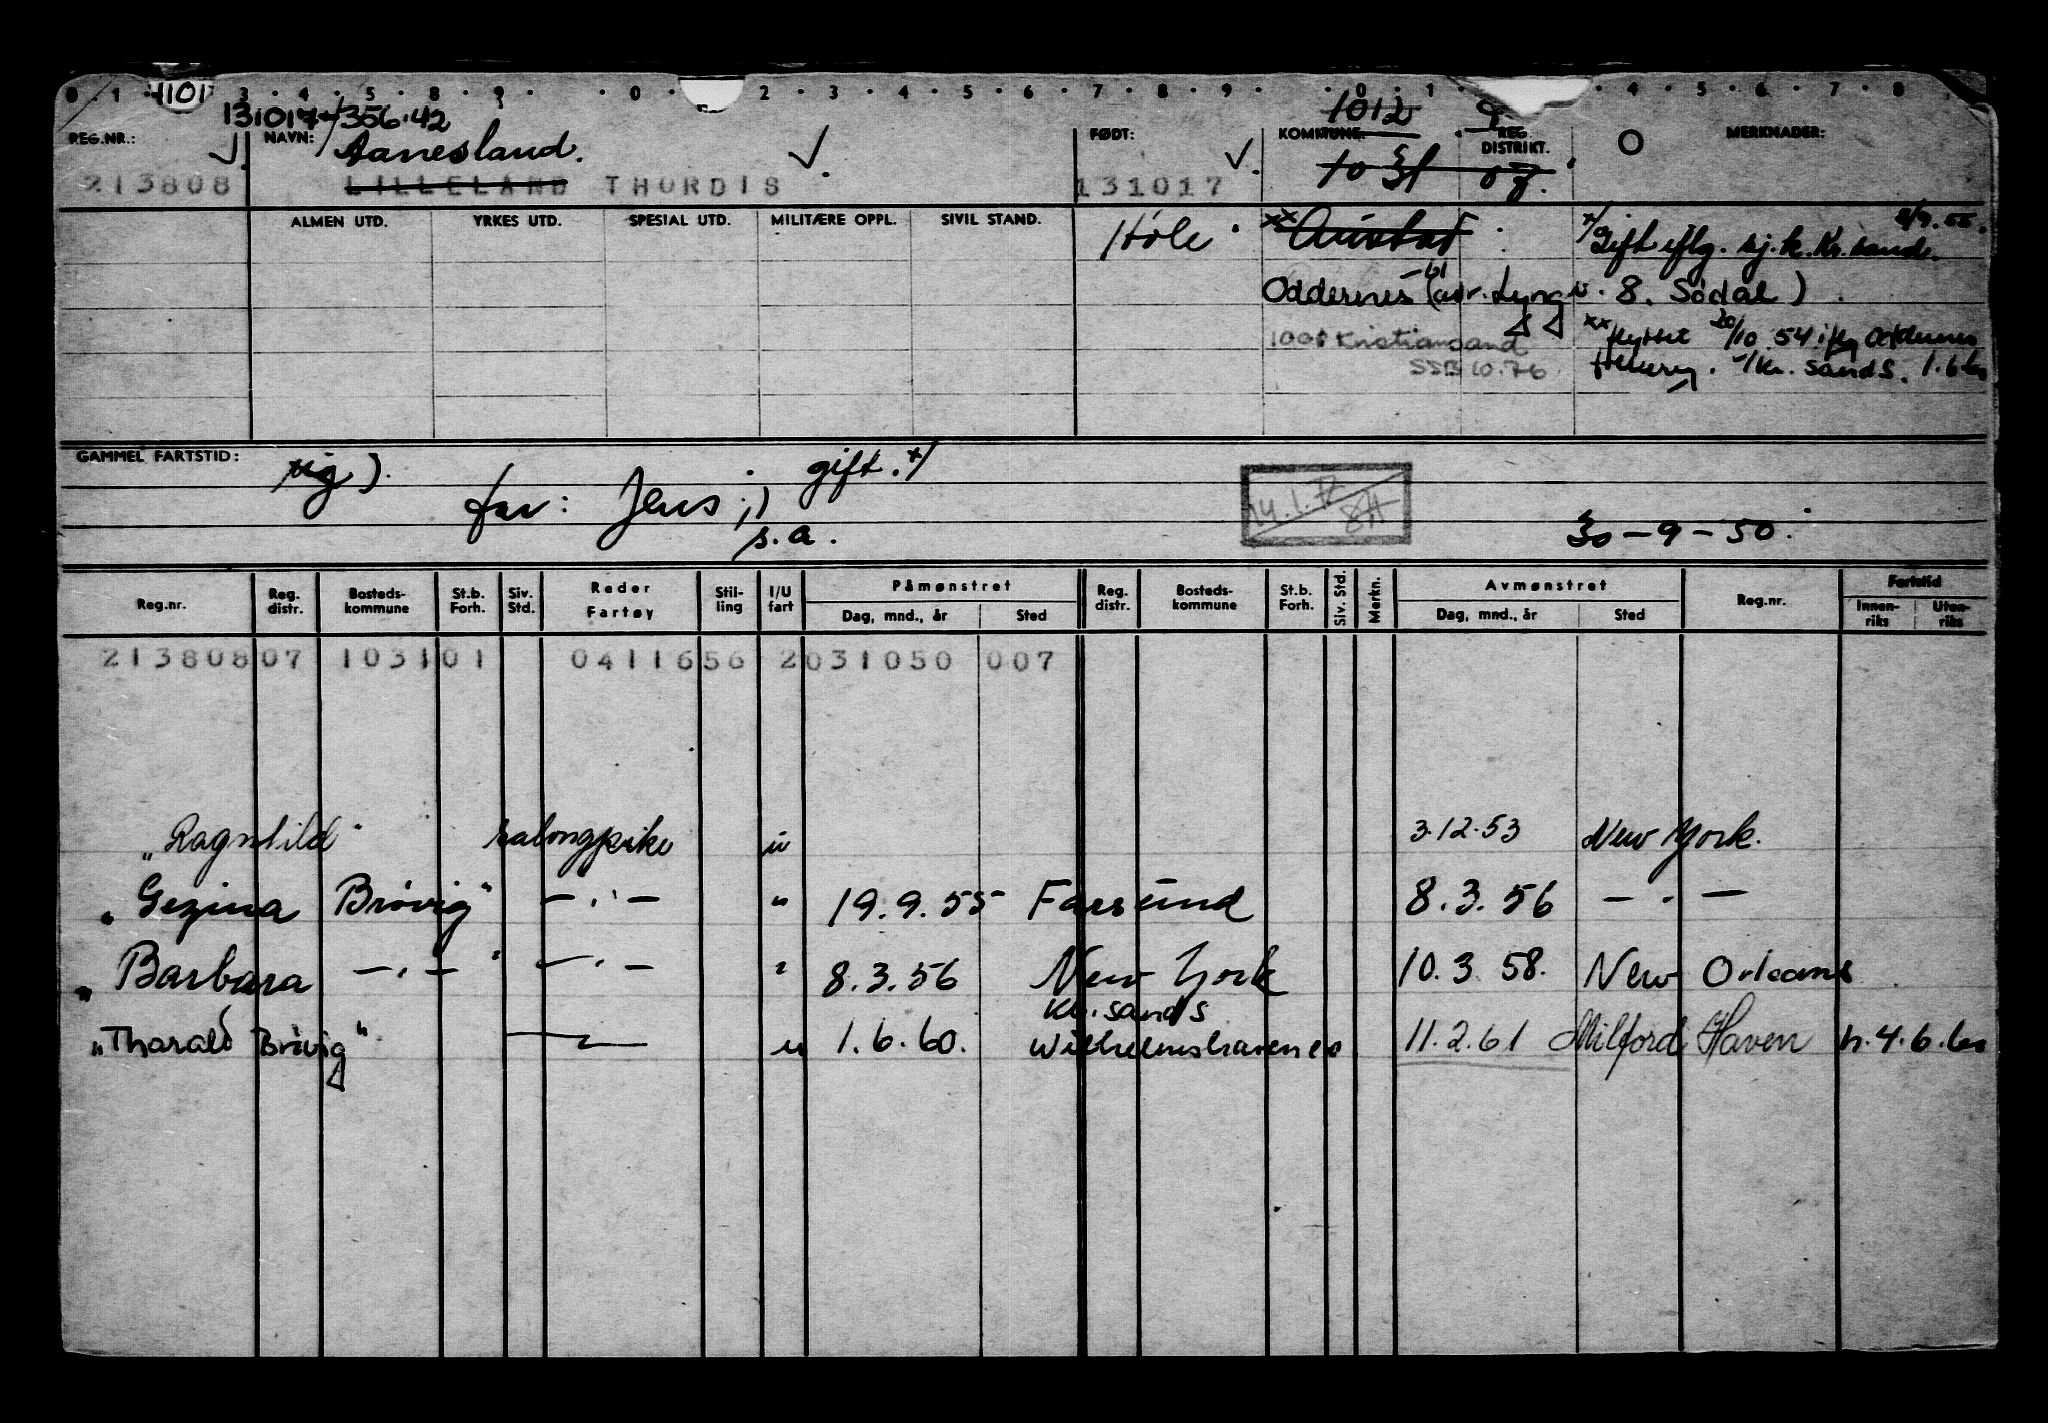 0 . 1 . 1101 3 . 4 . 5 . 8 . 9 . . 0 . 2 . 3 . 4 . 5 . 6 . 7 . 8 . 9 . 0 . 1 . 4 . 5 . 6 . 7 . 8
131017 356.42 1012 9
REG.NR.: NAVN: Aanesland. FØDT: KOMMUNE: REG. DISTRIKT. MERKNADER:
213808 LILLELAND THORDIS 131017 1031 07.
ALMEN UTD. YRKES UTD. SPESIAL UTD. MILITÆRE OPPL. SIVIL STAND. Hole Austad x/ Gift iflg. sj.k. Kr.sand. 8/9.55.
Oddernes (adr. Lyngv. 8. Södal)
1001 Kristiansand xx flyttet 20/10 54 iflg Oddernes
SSB 10.76 Kr. sand S.
GAMMEL FARTSTID: gift. x/
far: Jens ;)
s.a. 30-9-50.
Reg.nr. Reg. distr. Bosteds- kommune St.b. Forh. Siv. Std. Reder Fartøy Stil- ling I/U fart Påmønstret Reg. distr. Bosteds- kommune St.b. Forh. Siv. Std. Merkn. Avmønstret Reg.nr. Fartstid
Dag, mnd., år Sted Dag, mnd., år Sted Innen- riks Uten- riks
213808 07 1031 01 04116 56 2 031050 007
"Ragnhild" salongpike u 3.12.53 New York.
"Gezina Brøvig" — " — " 19.9.55 Farsund 8.3.56 — " —
"Barbara — " — " — " — " 8.3.56 New York 10.3.58. New Orleans
Kr.sand S
"Thorald Brøvig" — " — u 1.6.60. Wilhelmshaven 11.2.61 Milford Haven h.4.6.60